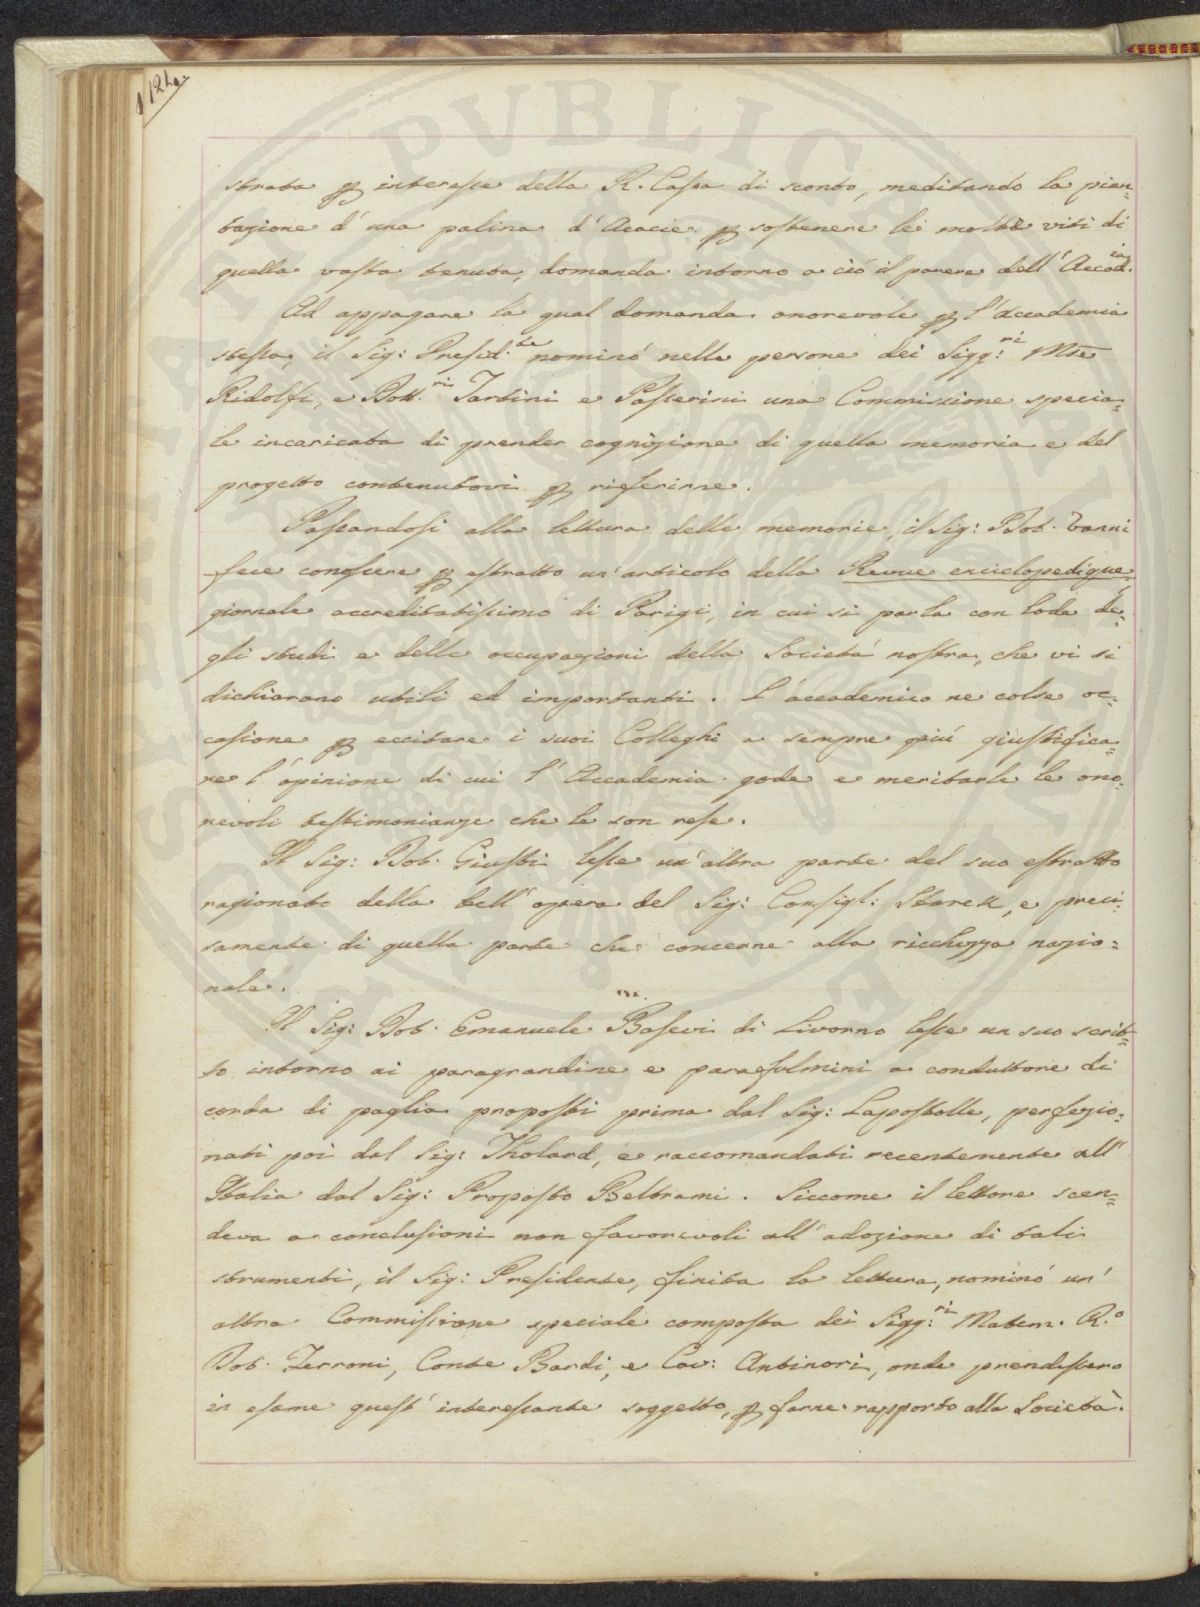 112.
strata per interesse della R. Cassa di sconto, meditando la pian=
tazione d'una palina d'Acacie per sostenere le molte viti di
quella vasta tenuta, domanda intorno a ciò il parere dell'Accad.ia
Ad appagare la qual domanda onorevole per l'Accademia
stessa, il Sig: Presid:te nominò nelle persone dei Sigg:ri Mse
Ridolfi, e Dott.ri Tartini e Passerini una Commissione specia=
le incaricata di prender cognizione di quella memoria e del
progetto contenutovi per riferirne.
Passandosi alla lettura delle memorie, il Sig: Dot. Vanni
fece conoscere per estratto un'articolo della Revue enciclopedique
giornale accreditatissimo di Parigi, in cui si parla con lode de=
gli studi e delle occupazioni della Società nostra, che vi si
dichiarano utili ed importanti. L'accademico ne colse oc=
casione per eccitare i suoi Colleghi a sempre più giustifica=
re l'opinione di cui l'Accademia gode e meritarle le ono=
revoli testimonianze che le son rese.
Il Sig: Dot. Giusti lesse un'altra parte del suo estratto
ragionato della bell'opera del Sig: Consigl: Storck, e preci=
samente di quella parte che concerne alla ricchezza nazio=
nale.
Il Sig: Dot. Emanuele Basevi di Livorno lesse un suo scrit=
to intorno ai paragrandine e parafulmini a conduttore di
corda di paglia proposti prima dal Sig: Lapostolle, perfezio=
nati poi dal Sig: Tholard, e raccomandati recentemente all'
Italia dal Sig: Proposto Beltrami. Siccome il lettore scen=
deva a conclusioni non favorevoli all'adozione di tali
strumenti, il Sig: Presidente, finita la lettura, nominò un'
altra Commissione speciale composta dei Sigg:ri Matem. R.o
Dot. Ferroni, Conte Bardi, e Cav: Antinori, onde prendessero
in esame quest'interessante soggetto, per farne rapporto alla Società.